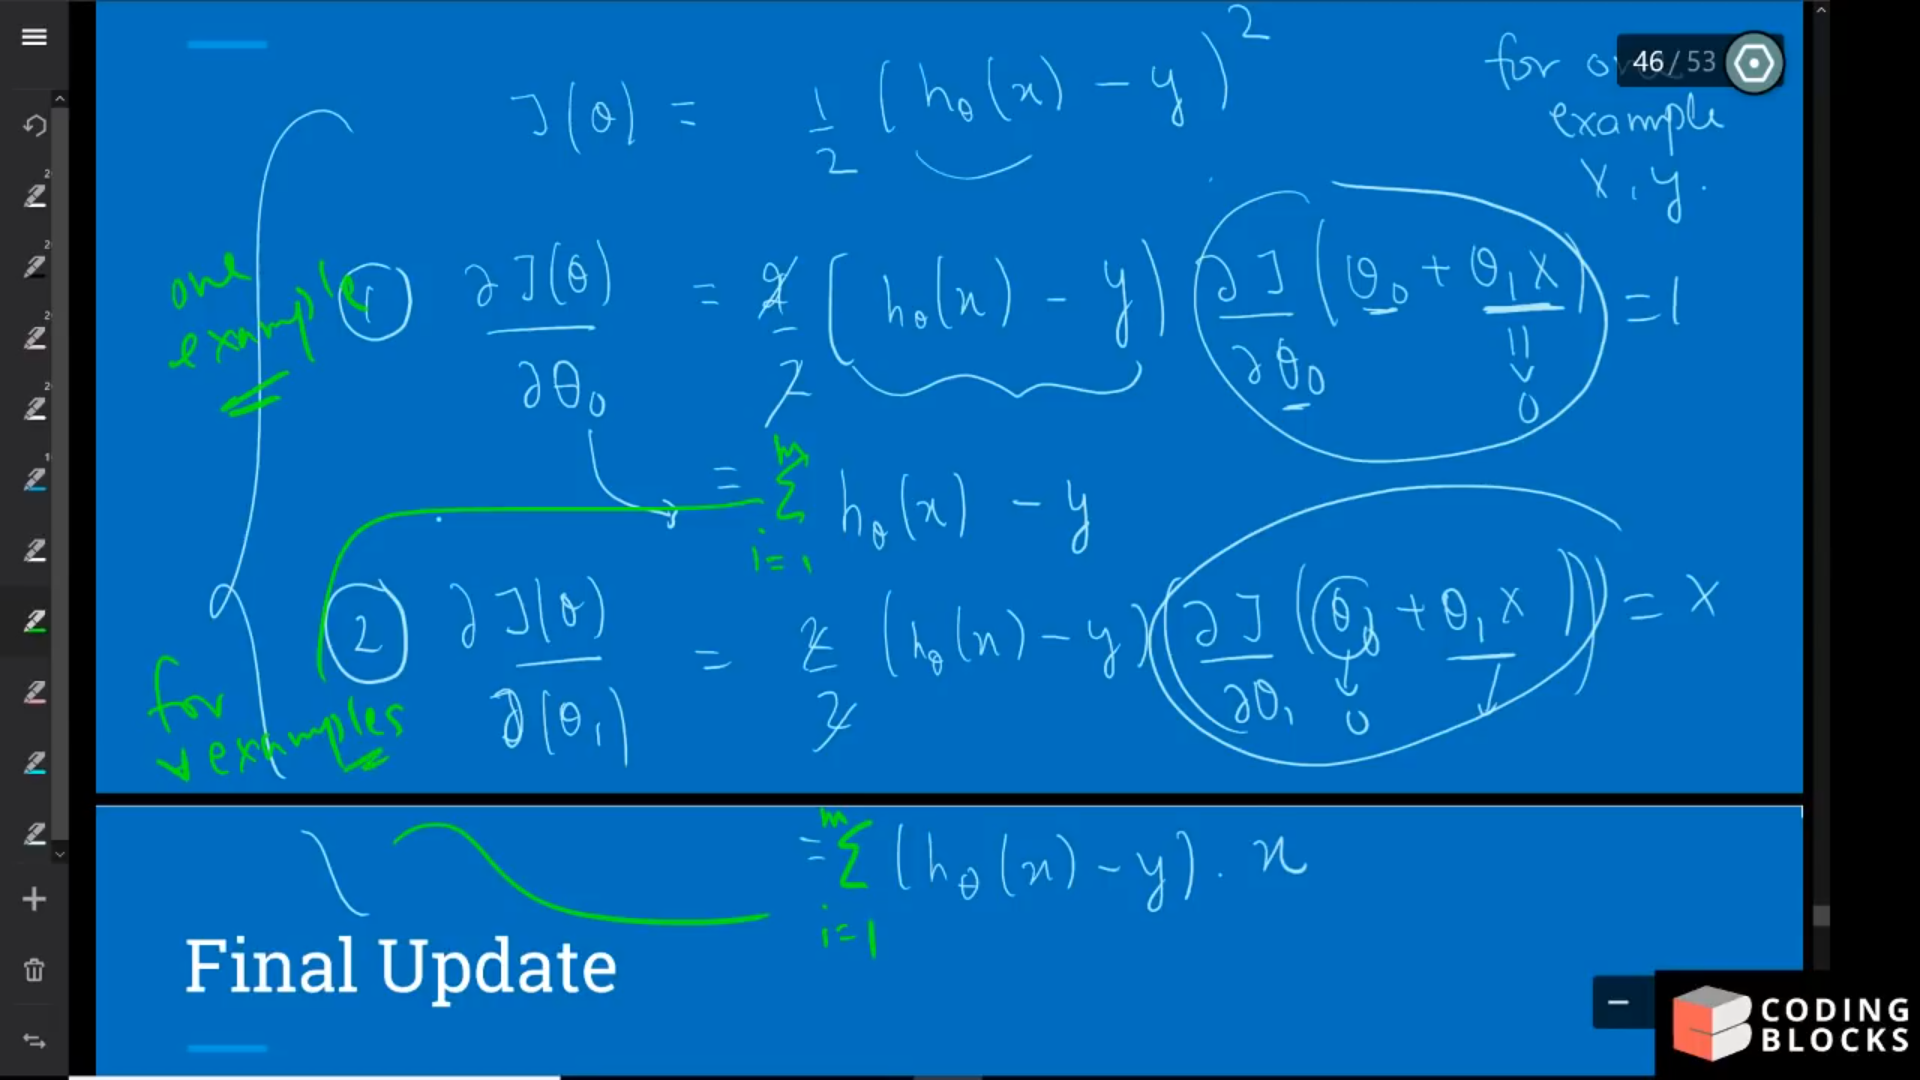 J(θ) = 1/2 (hθ(x) − y)²
for
46 / 53
example
x, y.
one
example
① ∂J(θ)/∂θ₀ = 2/2 (hθ(x) − y) ∂J/∂θ₀ (θ₀ + θ₁x) = 1
0
= m Σ i=1 hθ(x) − y
② ∂J(θ)/∂(θ₁) = 2/2 (hθ(x) − y) (∂J/∂θ₁ (θ₀ + θ₁x)) = x
0
for
∀ examples
= m Σ i=1 (hθ(x) − y) . x
Final Update
CODING
BLOCKS